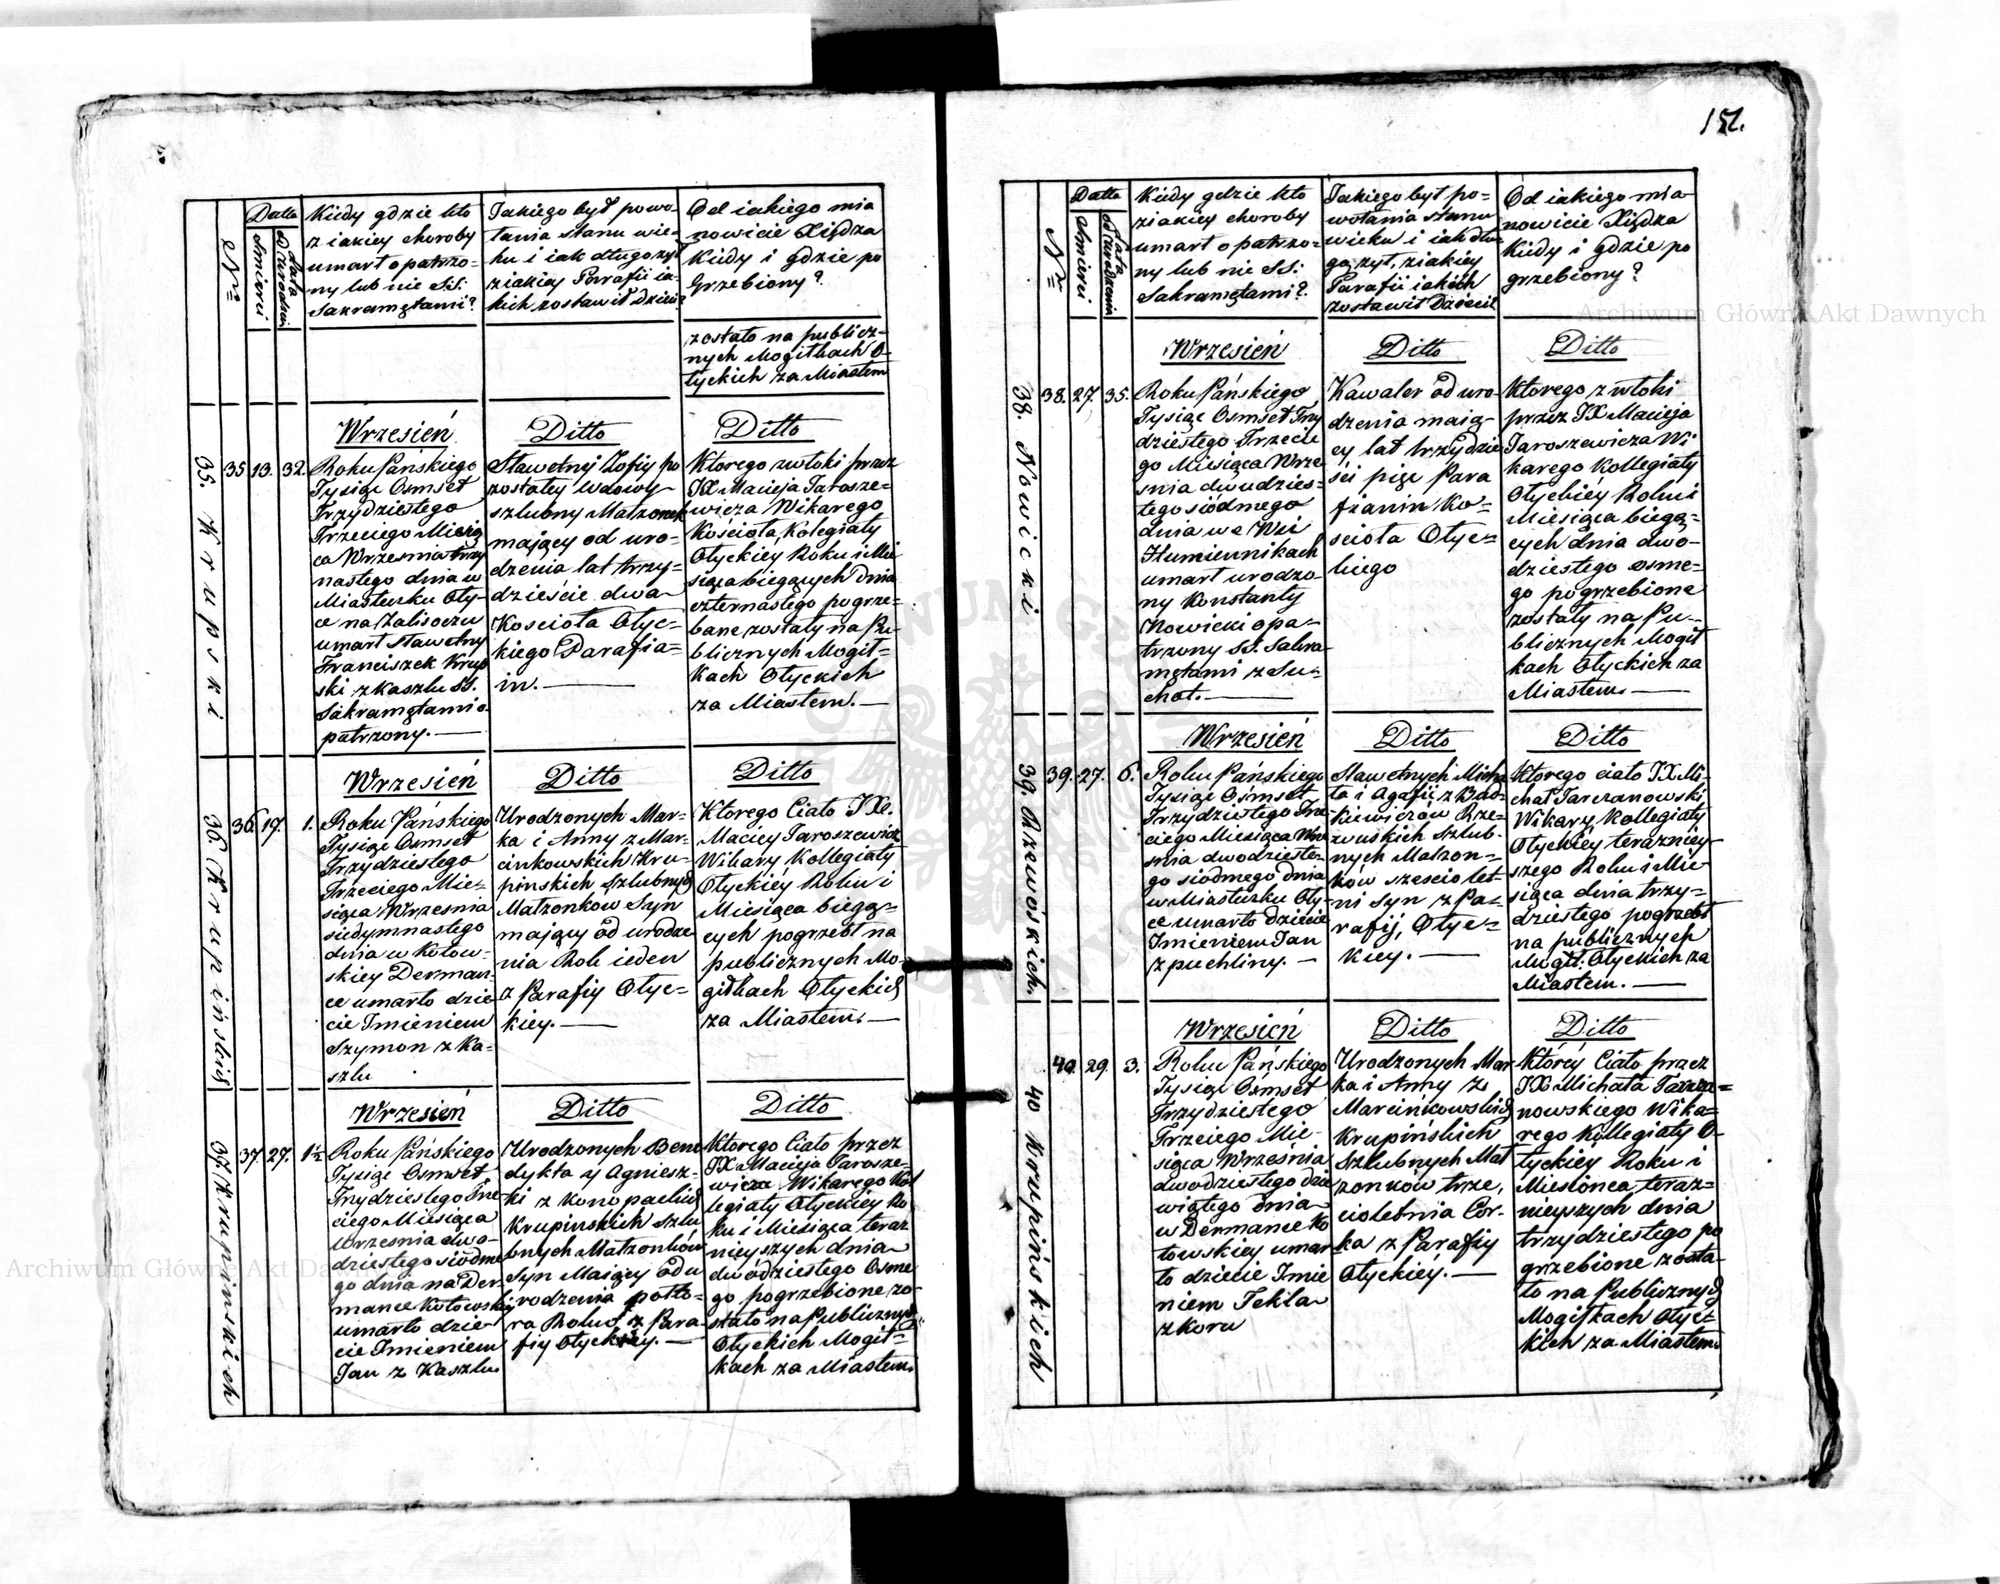 151.
Nr̲
Datta
Smierci
Lata
od urodzin
Kiedy gdzie kto
z iakiey choroby
umarł opatrzo-
ny lub nie SS.
Sakramętami?
Jakiego był powo-
łania stanu wie-
ku i iak długo żył
z iakiey Parafii ia-
kich zostawił dzieci?
Od iakiego mia
nowicie Xiędza
Kiedy i gdzie po
grzebiony?
zostało na publicz-
nych Mogiłkach O-
łyckich za Miastem
35. Krupski
35
13.
32.
Wrzesień
Roku Pańskiego
Tysiąc Osmset
Trzydziestego
Trzeciego Miesią
ca Wrzesnia trzy
nastego dnia w
Miasteczku Oły-
ce na Zalisoczu
umarł sławetny
Franciszek Krup
ski z kaszlu SS.
Sakramętami o
patrzony.
Ditto
Sławetney Zofiy po
zostałey wdowy
szlubny Małżonek
mający od uro-
dzenia lat trzy-
dzieście dwa
Kościoła Ołyc-
kiego Parafia-
in.
Ditto
Ktorego zwłoki przez
JX Macieja Jarosze-
wicza Wikarego
Kościoła Kolegiaty
Ołyckiey Roku i Mie
siąca biegących dnia
czternastego pogrze-
bane zostały na Pu-
blicznych Mogił-
kach Ołyckich
za Miastem.
36. Krupińskich
36.
17.
1.
Wrzesień
Roku Pańskiego
Tysiąc Osmset
Trzydziestego
Trzeciego Mie-
siąca Wrzesnia
siedymnastego
dnia w Kołow-
skiey Derman-
ce umarło dzie
cie Imieniem
Szymon z Ka-
szlu
Ditto
Urodzonych Mar-
ka i Anny z Mar-
cinkowskich Kru-
pinskich Szlubnych
Małzonkow Syn
mający od urodze
nia Rok ieden
z Parafiy Ołyc-
kiey.
Ditto
Ktorego Ciało JXe.
Maciey Jaroszewicz
Wikary Kollegiaty
Ołyckiéy Roku i
Miesiąca biegą-
cych pogrzebł na
publicznych Mo-
giłkach Ołyckich
za Miastem.
37. Krupinskich
37.
27.
1½
Wrzesień
Roku Pańskiego
Tysiąc Osmset
Trzydziestego Trze
ciego Miesiąca
Wrzesnia dwo-
dziestego siodme
go dnia na Der
mance Kołowskiy
umarło dzie
cie Imieniem
Jan z Kaszlu.
Ditto
Urodzonych Bene
dykta y Agniesz-
ki z Konopackich
Krupinskich Szlu
bnych Małzonków
Syn Maiący od u
rodzenia połto-
ra Roku z Para-
fiy Ołyckiey.
Ditto
Ktorego Ciało przez
JX Macieja Jarosze-
wicza Wikarego Kol
legiaty Ołyckiey Ro
ku i Miesiąca teraz
nieyszych dnia
dwódziestego Osme
go pogrzebione zo-
stało na Publicznych
Ołyckich Mogił-
kach za Miastem.
Nr̲
Datta
Smierci
Lata
od urodzenia
Kiedy gdzie kto
z iakiey choroby
umarł opatrzo-
ny lub nie SS.
Sakramętami?
Jakiego był po-
wołania stanu
wieku i iak dłu-
go żył, z iakiey
Parafii iakich
zostawił Dzieci?
Od iakiego mia
nowicie Xiędza
Kiedy i gdzie po
grzebiony?
38. Nowicki
38.
27.
35.
Wrzesień
Roku Pańskiego
Tysiąc Osmset Trzy
dziestego Trzecie
go Miesiąca Wrze
snia dwudzies-
tego siódmego
dnia we Wsi
Humiennikach
umarł urodzo-
ny Konstanty
Nowicki opa-
trzony SS. Sakra
mętami z Su-
chot.
Ditto
Kawaler od uro
dzenia maią-
cy lat trzydzie
ści pięć Para
fianin Ko-
scioła Ołyc-
kiego
Ditto
Ktorego zwłoki
przez JX Macieja
Jaroszewicza Wi-
karego Kollegiaty
Ołyckiéy Roku i
Miesiąca biegą-
cych dnia dwo-
dziestego osme-
go pogrzebione
zostały na Pu-
blicznych Mogił
kach Ołyckich za
Miastem.
39. Rzewóskich.
39.
27.
6.
Wrzesień
Roku Pańskiego
Tysiąc Ósmset
Trzydziestego Trze
ciego Miesiąca Wrze
snia dwodzieste-
go siodmego dnia
w Miasteczku Oły-
ce umarło dziecie
Imieniem Jan
z puchliny.
Ditto
Sławetnych Micha
ła i Agafii z
kiewiczów Rze-
wuskich Szlub-
nych Małzon-
ków szesciolet-
ni Syn z Pa-
rafij, Ołyc-
kiey.
Ditto
Ktorego ciało JX Mi-
chał Tarczanowski
Wikary Kollegiaty
Ołyckiéy terazniey-
szego Roku i Mie-
siąca dnia trzy-
dziestego pogrzebł
na publicznych
Mogił: Ołyckich za
Miastem.
40 Krupińskich
40.
29.
3.
Wrzesień
Roku Pańskiego
Tysiąc Ósmset
Trzydziestego
Trzeciego Mie-
siąca Września
dwodziestego dzie
wiątego dnia
w Dermance Ko
łowskiey umar-
ło dziecie Imie
niem Tekla
z koru
Ditto
Urodzonych Mar
ka i Anny z
Marcińkowskich
Krupińskich
Szlubnych Mał
zonków trze,
cioletnia Cór-
ka z Parafiy
Ołyckiéy.
Ditto
Którey Ciało przez
JX Michała Tarcza=
nowskiego Wika-
rego Kollegiaty O-
łyckiey Roku i
Miesionca teraz-
nieyszych dnia
trzydziestego po
grzebione zosta-
ło na Publicznych
Mogiłkach Ołyc-
kich za Miastem
Archiwum Główne Akt Dawnych
Archiwum Główne Akt Dawnych